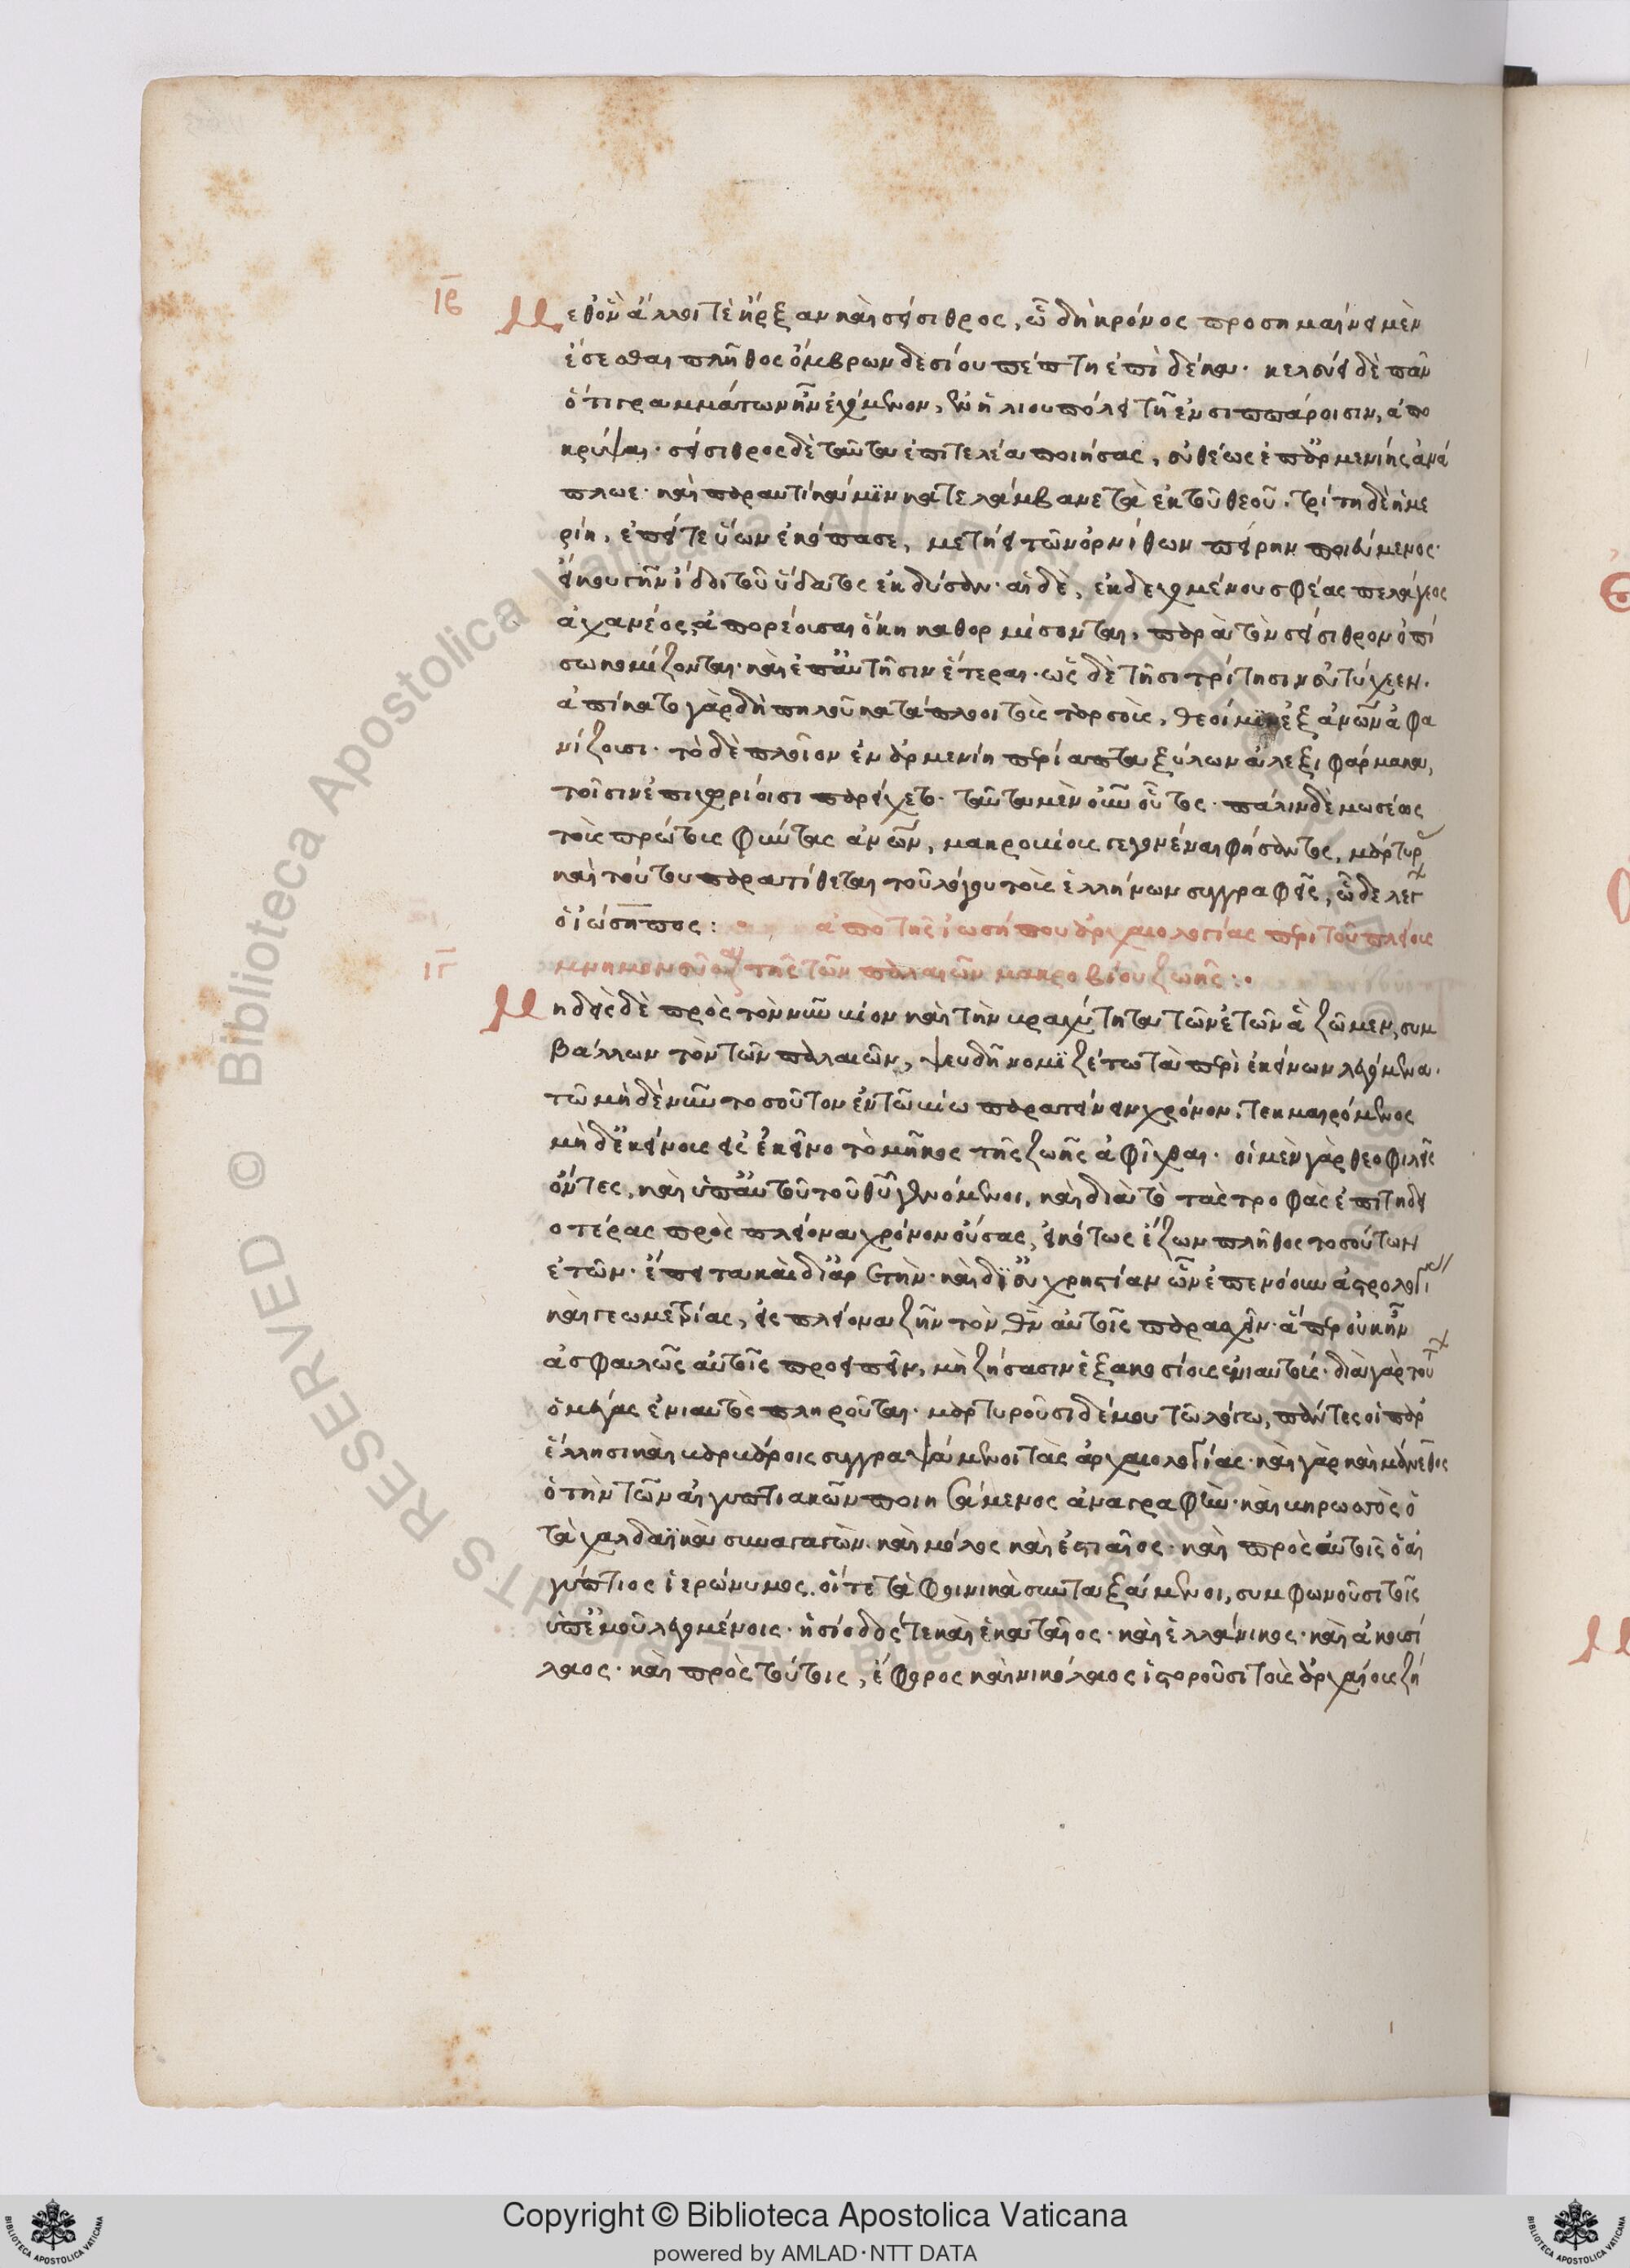 ιβ Μεθ' ὃν ἄλλοι τὲ ἦρξαν καὶ σείσιθρος, ὧ δὴ κρόνος προσημαίνει μὲν
ἔσεσθαι πλῆθος ὄμβρων δεσίου πέπτη ἐπὶ δέκα· κελεύει δὲ πᾶν
ὅτι γραμμάτων ἦν ἐχόμενον, ἐν ἡλιουπόλει τῆ ἐν σιππάροισιν, ἀπο
κρύψαι· σείσιθρος δὲ ταῦτα ἐπιτελέα ποιήσας, εὐθέως ἐπ' ἀρμενίης ἀνέ
πλωε· καὶ παραυτίκα μϊν κατελάμβανε τὰ ἐκ τοῦ θεοῦ· τρίτη δὲ ἡμέ
ρῃ, ἐπεί τε ὕων ἐκόπασε, μετήει τῶν ὀρνίθων πεῖραν ποιεύμενος·
εἴ κου γῆν ἴδοι τοῦ ὕδατος ἐκδῦσαν· αἱ δὲ, ἐκδεχομένου σφέας πελάγεος
ἀχανέος, ἀπορέουσαι ὅκη καθορμίσονται, παρὰ τὸν σείσιθρον ὀπί
σω κομίζονται· καὶ ἐπ' αὐτῆσιν ἕτεραι· ὡς δὲ τῆσι τρίτησιν εὐτύχεεν·
ἀπίκατο γὰρ δὴ πηλοῦ κατάπλεοι τοὺς ταρσοὺς, θεοί μϊν ἐξ ἀνων ἀφα
νίζουσι· τὸ δὲ πλοῖον ἐν ἀρμενίη περίαπτα ξύλων ἀλεξιφάρμακα,
τοῖσιν ἐπιχωρίοισι παρείχετο· ταῦτα μὲν οὖν οὗτος· πάλιν δὲ μωσέως
τοὺς πρώτους φύντας ἀνων, μακροβίους γεγονέναι φήσαντος, μάρτυρ
καὶ τούτου παρατίθεται τοῦ λόγου τοὺς ἑλλήνων συγγραφεῖς, ὧδε λεγ
ὁ ἰώσηπος: ἀπὸ τῆς ἰωσήπου ἀρχαιολογίας περὶ τοῦ πλείους
ιγ μνημονεῦσαι τῆς τῶν παλαιῶν μακροβίου ζωῆς:
Μηδεὶς δὲ πρὸς τὸν νῦν βίον καὶ τὴν βραχύτητα τῶν ἐτῶν ἃ ζῶμεν, συμ
βάλλων τὸν τῶν παλαιῶν, ψευδῆ νομϊζέτω τὰ περὶ ἐκείνων λεγόμενα·
τῶ μηδένα νῦν τοσοῦτον ἐν τῶ βίω παρατείνειν χρόνον, τεκμαιρόμενος
μὴ δ' ἐκείνους εἰς ἐκεῖνο τὸ μῆκος τῆς ζωῆς ἀφῖχθαι· οἱ μὲν γὰρ θεοφιλεῖς
ὄντες, καὶ ὑπ' αὐτοῦ τοῦ θυ γενόμενοι, καὶ διὰ τὸ τὰς τροφὰς ἐπιτηδει
οτέρας πρὸς πλείονα χρόνον οὔσας, εἰκότως ἔζων πλῆθος τοσούτων
ἐτῶν· ἔπειτα καὶ δι' ἀρετὴν· καὶ δϊ' εὐχρηστίαν ὧν ἐπενόουν ἀστρολογί
καὶ γεωμετρίας, εἰς πλείονα ζῆν τὸν θν αὐτοῖς παρασχεῖν· ἅπερ οὐκ ἦν
ἀσφαλῶς αὐτοῖς προειπεῖν, μὴ ζήσασιν ἑξακοσίους ἐνιαυτούς· διὰ γὰρ τοσού
ὁ μέγας ἐνιαυτὸς πληροῦται· μαρτυροῦσι δέ μου τῶ λόγω, πάντες οἱ παρ'
ἕλλησι καὶ βαρβάροις συγγραψάμενοι τὰς ἀρχαιολογίας· καὶ γὰρ καὶ μάνεθος
ὁ τὴν τῶν αἰγυπτιακῶν ποιησάμενος ἀναγραφὴν· καὶ βηρωσσὸς ὁ
τὰ χαλδαϊκὰ συναγαγὼν· καὶ μόλος καὶ ἑστιαῖος· καὶ πρὸς αὐτοῖς ὁ αἰ
γύπτιος ἱερώνυμος· οἵ τε τὰ φοινικὰ συνταξάμενοι, συμφωνοῦσι τοῖς
ὑπ' ἐμοῦ λεγομένοις· ἡσίοδός τε καὶ ἑκαταῖος· καὶ ἑλλάνικος· καὶ ἀκουσί
λαος· καὶ πρὸς τούτοις, ἔφορος καὶ νικόλαος ἱστοροῦσι τοὺς ἀρχαίους ζή
Copyright © Biblioteca Apostolica Vaticana
powered by AMLAD·NTT DATA